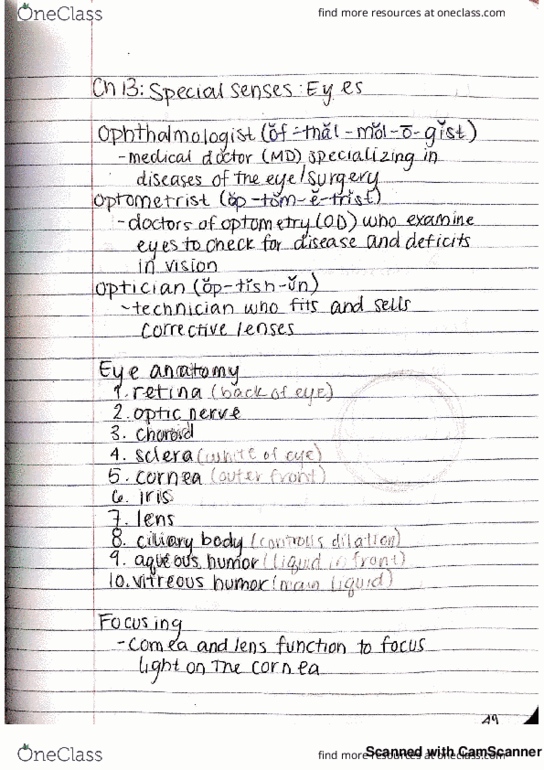 OneClass
find more resources at oneclass.com
Ch 13: Special senses: Eyes
Ophthalmologist (ŏf-thăl-mŏl-ō-gĭst)
-medical doctor (MD) specializing in
diseases of the eye/surgery
Optometrist (ŏp-tŏm-ĕ-trĭst)
-doctors of optometry (OD) who examine
eyes to check for disease and deficits
in vision
Optician (ŏp-tĭsh-ŭn)
-technician who fits and sells
corrective lenses
Eye anatomy
1. retina (back of eye)
2. optic nerve
3. choroid
4. sclera (white of eye)
5. cornea (outer front)
6. iris
7. lens
8. ciliary body (controls dilation)
9. aqueous humor (liquid in front)
10. vitreous humor (main liquid)
Focusing
-cornea and lens function to focus
light on the cornea
19
OneClass
find more resources at oneclass.com
Scanned with CamScanner